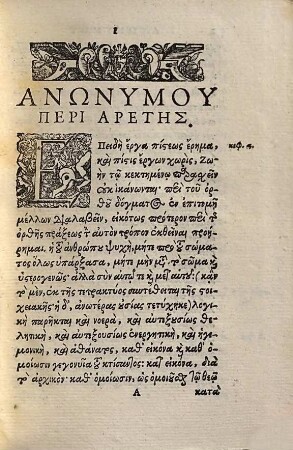 1
ΑΝΩΝΥΜΟΥ
ΠΕΡΙ ΑΡΕΤΗΣ.
ΕΠειδὴ ἔργα πίστεως ἔρημα, κεφ. α.
καὶ πίστις ἔργων χωρὶς, ζωὴν
τῷ κεκτημένῳ
οὐκ ἱκάνωνται· περὶ τοῦ ὀρθοῦ
δόγματος ἐν ἐπιτομῇ
μέλλων διαλαβεῖν, εἰκότως πρότερον περὶ τῆς
ὀρθῆς πράξεως τ̃ αὐτὸν τρόπον ἐκθεῖναι προήρημαι.
ἡ τοῦ ἀνθρώπου ψυχὴ, μήτε πρὸ τοῦ σώματος
ὅλως ὑπάρξασα, μήτε μὴν μετὰ τὸ σῶμα καὶ
ὑστερογενὴς ἀλλὰ σὺν αὐτῷ τε καὶ μετ' αὐτοῦ· (κἂν
τὸ μὲν, ἐκ τῆς τετρακτύος συντέθειται τῆς στοιχειακῆς·
ἡ δ', ἀνωτέρας οὐσίας τετύχηκε) λογικὴ
παρῆκται καὶ νοερὰ, καὶ αὐτεξουσίως θελητικὴ,
καὶ αὐτεξουσίως ἐνεργητικὴ, καὶ ἡγεμονικὴ,
καὶ ἀθάνατος, καθ' εἰκόνα καὶ καθ' ὁμοίωσιν
γεγονυῖα τοῦ κτίσαντος· κατ' εἰκόνα, διὰ
τὸ ἀρχικόν· καθ' ὁμοίωσιν, ὡς τῷ θεῷ
A κατὰ